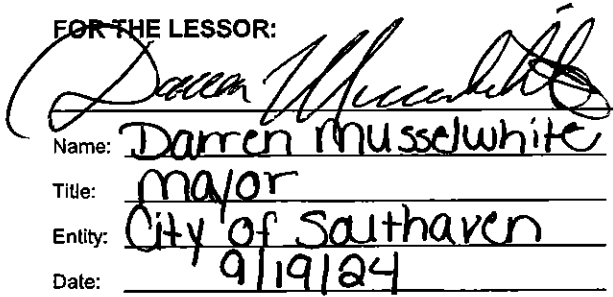 FOR THE LESSOR:
Darren Musselwhite
Name: Darren Musselwhite
Title: Mayor
Entity: City of Southaven
Date: 9/19/24